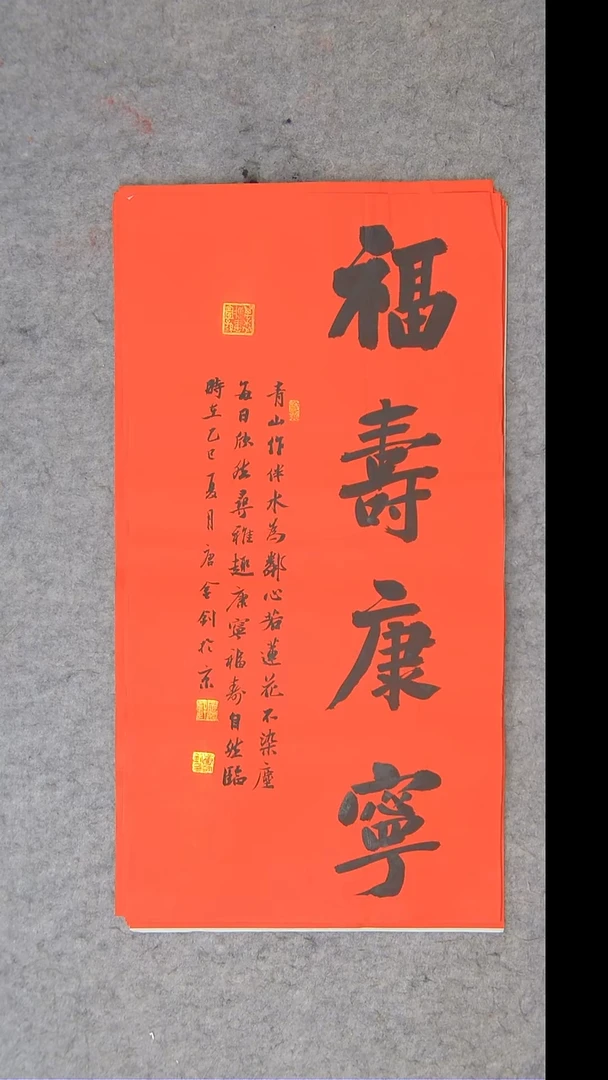 福壽康寧
青山作伴水為鄰心若蓮花不染塵
每日欣然尋雅趣康寧福壽自然臨
時在乙巳夏月唐金剑於京